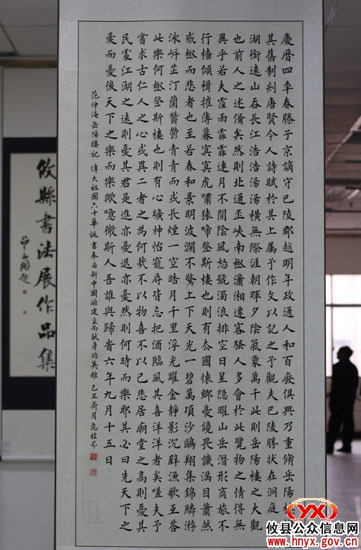 慶曆四年春滕子京謫守巴陵郡越明年政通人和百廢俱興乃重脩岳陽樓增
其舊制刻唐賢今人詩賦於其上屬予作文以記之予觀夫巴陵勝狀在洞庭一
湖銜遠山吞長江浩浩湯湯橫無際涯朝暉夕陰氣象萬千此則岳陽樓之大觀
也前人之述備矣然則北通巫峽南極瀟湘遷客騷人多會於此覽物之情得無
異乎若夫霪雨霏霏連月不開陰風怒號濁浪排空日星隱耀山岳潛形商旅不
行檣傾楫摧薄暮冥冥虎嘯猿啼登斯樓也則有去國懷鄉憂讒畏譏滿目蕭然
感極而悲者矣至若春和景明波瀾不驚上下天光一碧萬頃沙鷗翔集錦鱗游
泳岸芷汀蘭鬱鬱青青而或長煙一空皓月千里浮光耀金靜影沉璧漁歌互答
此樂何極登斯樓也則有心曠神怡寵辱皆忘把酒臨風其喜洋洋者矣嗟夫予
嘗求古仁人之心或異二者之為何哉不以物喜不以己悲居廟堂之高則憂其
民處江湖之遠則憂其君是進亦憂退亦憂然則何時而樂耶其必曰先天下之
憂而憂後天下之樂而樂歟噫微斯人吾誰與歸時六年九月十五日
范仲淹岳陽樓記 偉大祖國六十華誕 書奉為新中國的建立而獻身的英雄 己丑荷月 范桂芬
攸縣書法展作品集
攸县公众信息网
www.hnyx.gov.cn